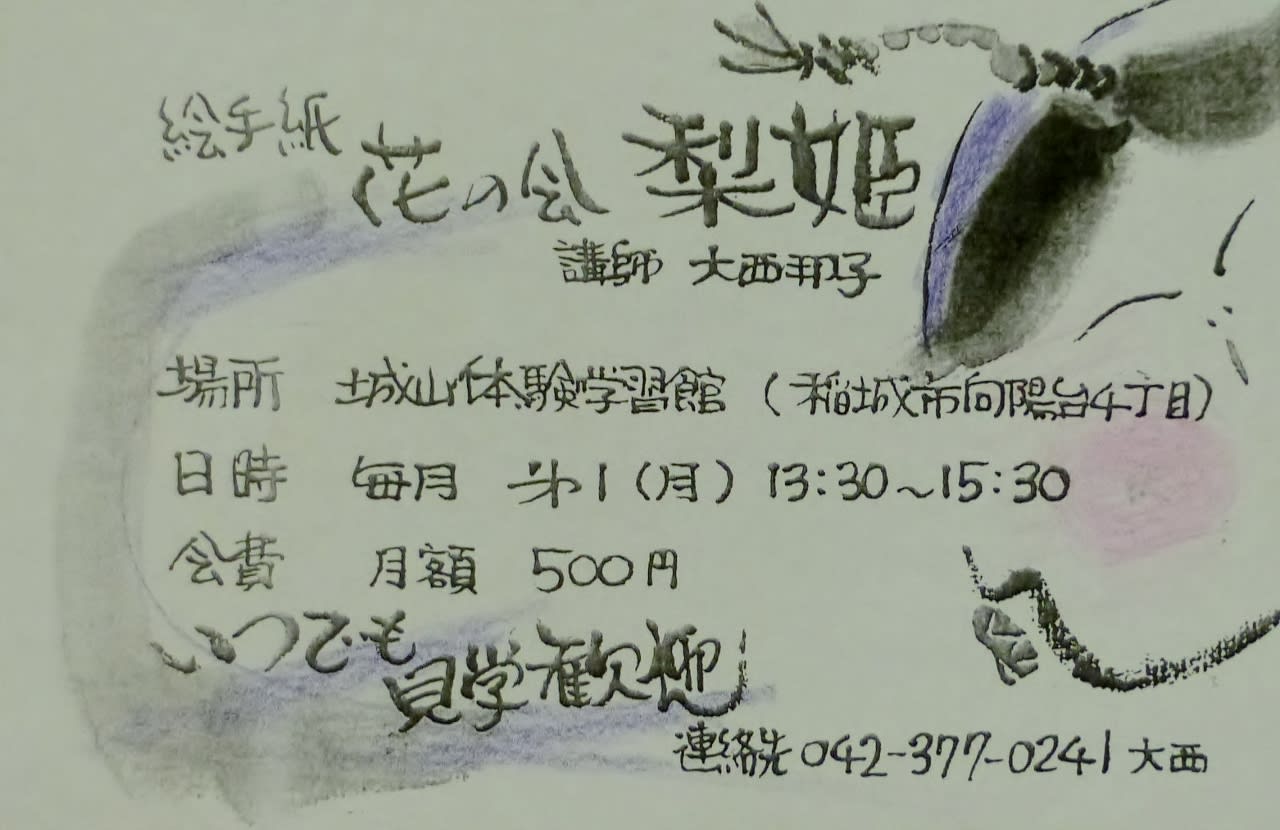 絵手紙 花の会 梨姫
講師 大西邦子
場所 城山体験学習館 (稲城市向陽台4丁目)
日時 毎月 第1(月) 13:30~15:30
会費 月額 500円
いつでも
見学歓迎
連絡先 042-377-0241 大西